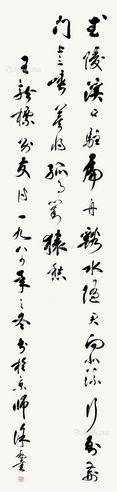 武陵溪口驻扁舟溪水随君向北流行到荆
门上三峡莫将孤月对猿愁
王龙标别友诗一九八八年之冬书于京师